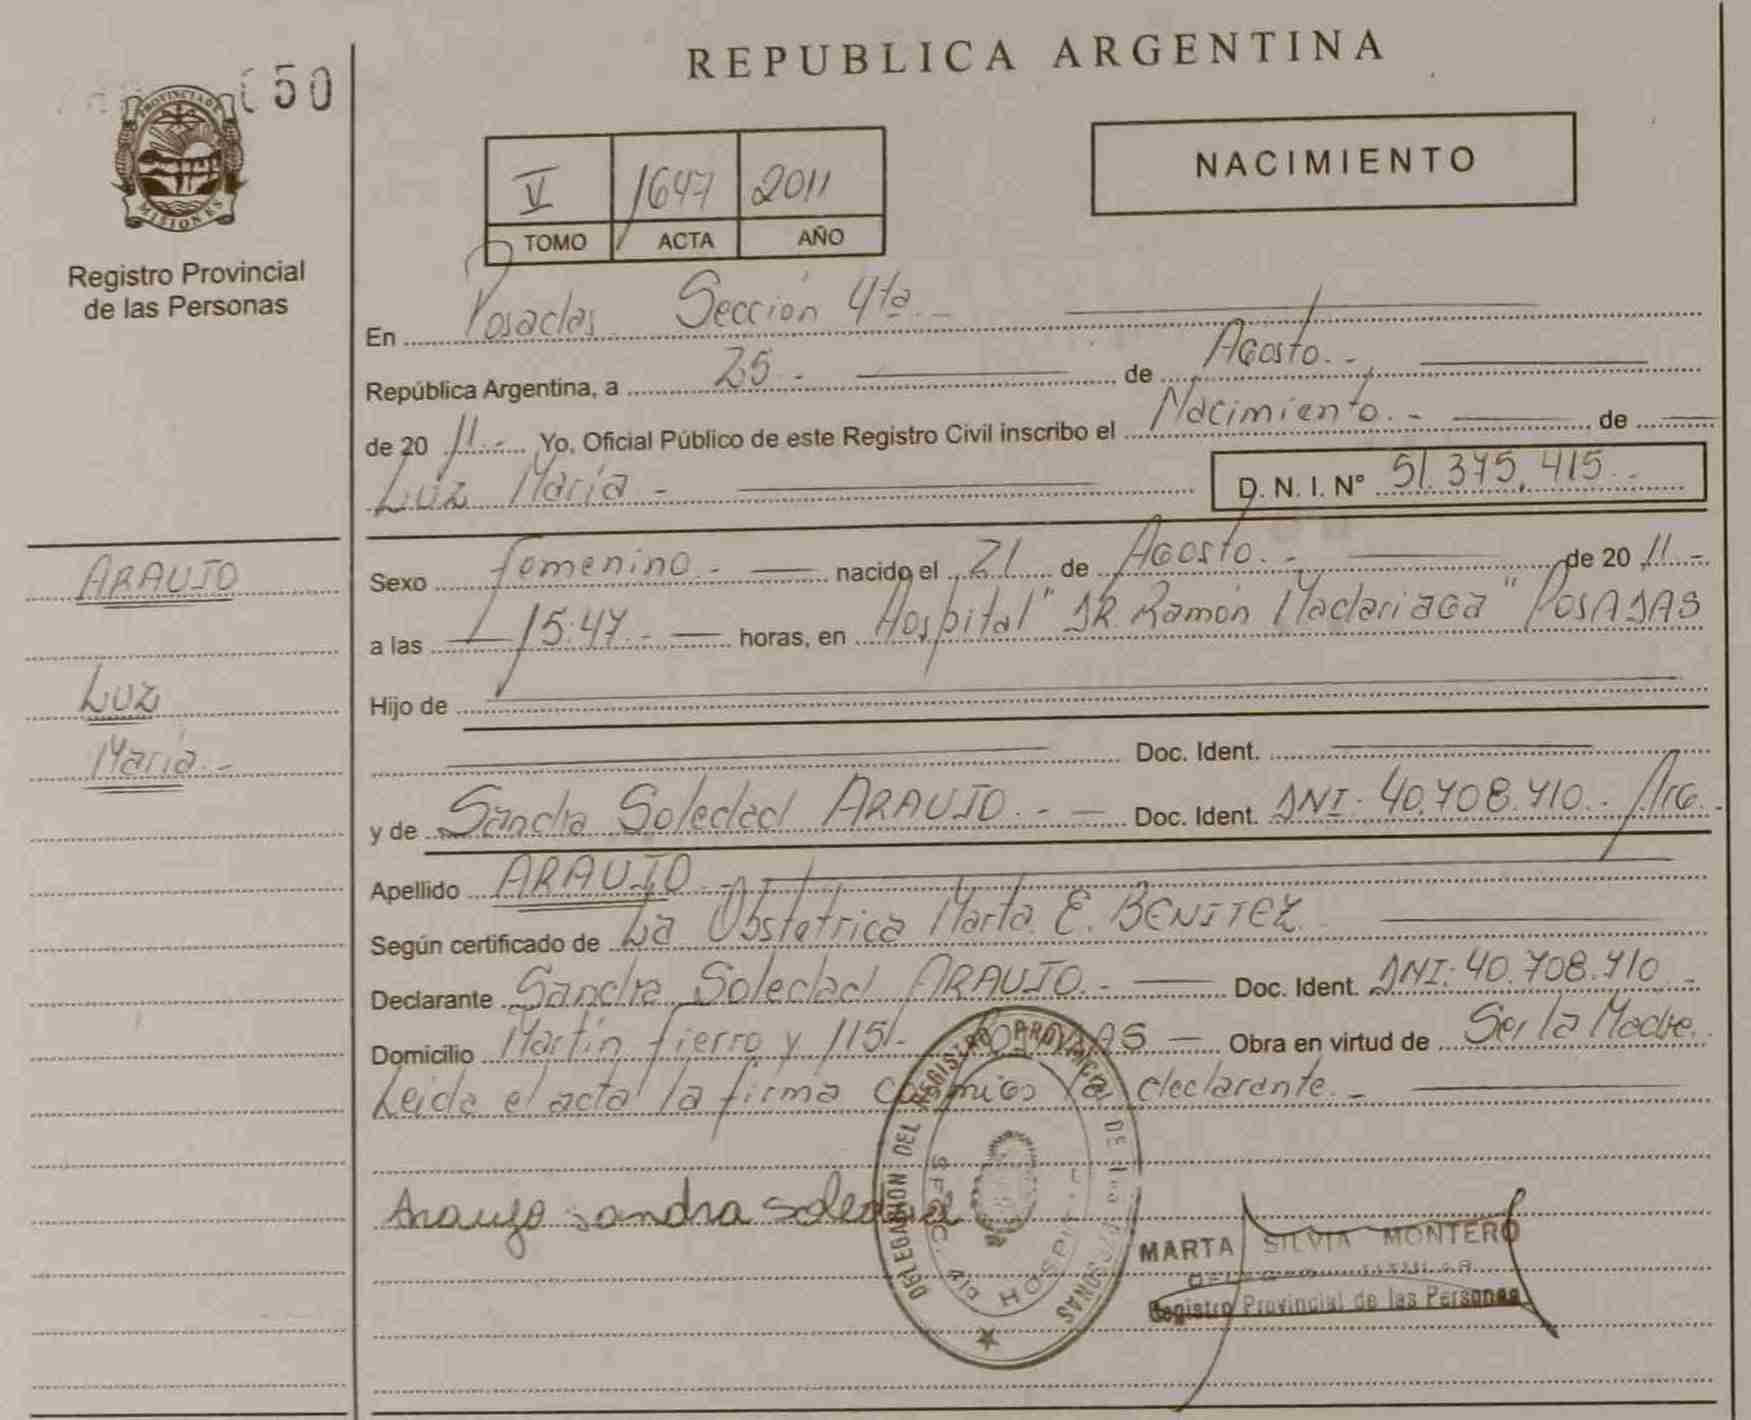 REPUBLICA ARGENTINA
50
PROVINCIA DE
MISIONES
Registro Provincial
de las Personas
NACIMIENTO
V 1647 2011
TOMO ACTA AÑO
En Posadas Sección 4ta.-
República Argentina, a 25.- de Agosto.-
de 20 11.- Yo, Oficial Público de este Registro Civil inscribo el Nacimiento.- de
Luz María - D. N. I. N° 51.375.415.-
ARAUJO
Luz
María.-
Sexo femenino.- nacido el 21 de Agosto.- de 20 11.-
a las 15:47.- horas, en Hospital "DR. Ramón Madariaga" POSADAS
Hijo de
Doc. Ident.
y de Sandra Soledad ARAUJO.- Doc. Ident. DNI. 40.708.710.- Arg.-
Apellido ARAUJO.-
Según certificado de La Obstetrica Marta E. BENITEZ
Declarante Sandra Soledad ARAUJO.- Doc. Ident. DNI: 40.708.710.-
Domicilio Martín fierro y 115/- POSADAS Obra en virtud de Ser la Madre.
Leida el acta la firma conmigo la declarante.-
Araujo sandra soledad
DELEGACION DEL REGISTRO PROVINCIAL DE LAS PERSONAS
SECC. 4ta HOSPI
MARTA SILVIA MONTERO
Registro Provincial de las Personas